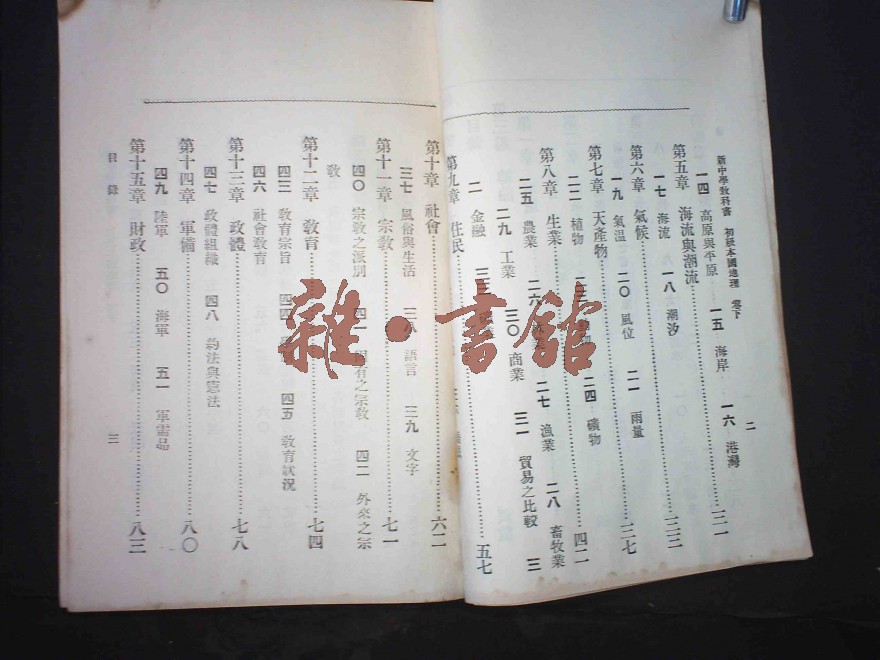 新中學教科書 初級本國地理 卷下
二
一四 高原與平原 一五 海岸 一六 港灣
第五章 海流與潮流 三三
一七 海流 一八 潮汐
第六章 氣候 二七
一九 氣溫 二〇 風位 二一 雨量
第七章 天產物 四二
二二 植物 二三 二四 礦物
第八章 生業
二五 農業 二六 二七 漁業 二八 畜牧業
二九 工業 三〇 商業 三一 貿易之比較 三
二 金融 三三
第九章 住民 五七
第十章 社會 六二
三七 風俗與生活 三八 語言 三九 文字
第十一章 宗教 七一
四〇 宗教之派別 四一 固有之宗教 四二 外來之宗
教
第十二章 教育 七四
四三 教育宗旨 四四 四五 教育狀況
四六 社會教育
第十三章 政體 七八
四七 政體組織 四八 約法與憲法
第十四章 軍備 八〇
四九 陸軍 五〇 海軍 五一 軍需品
第十五章 財政 八三
目錄
三
雜·書館